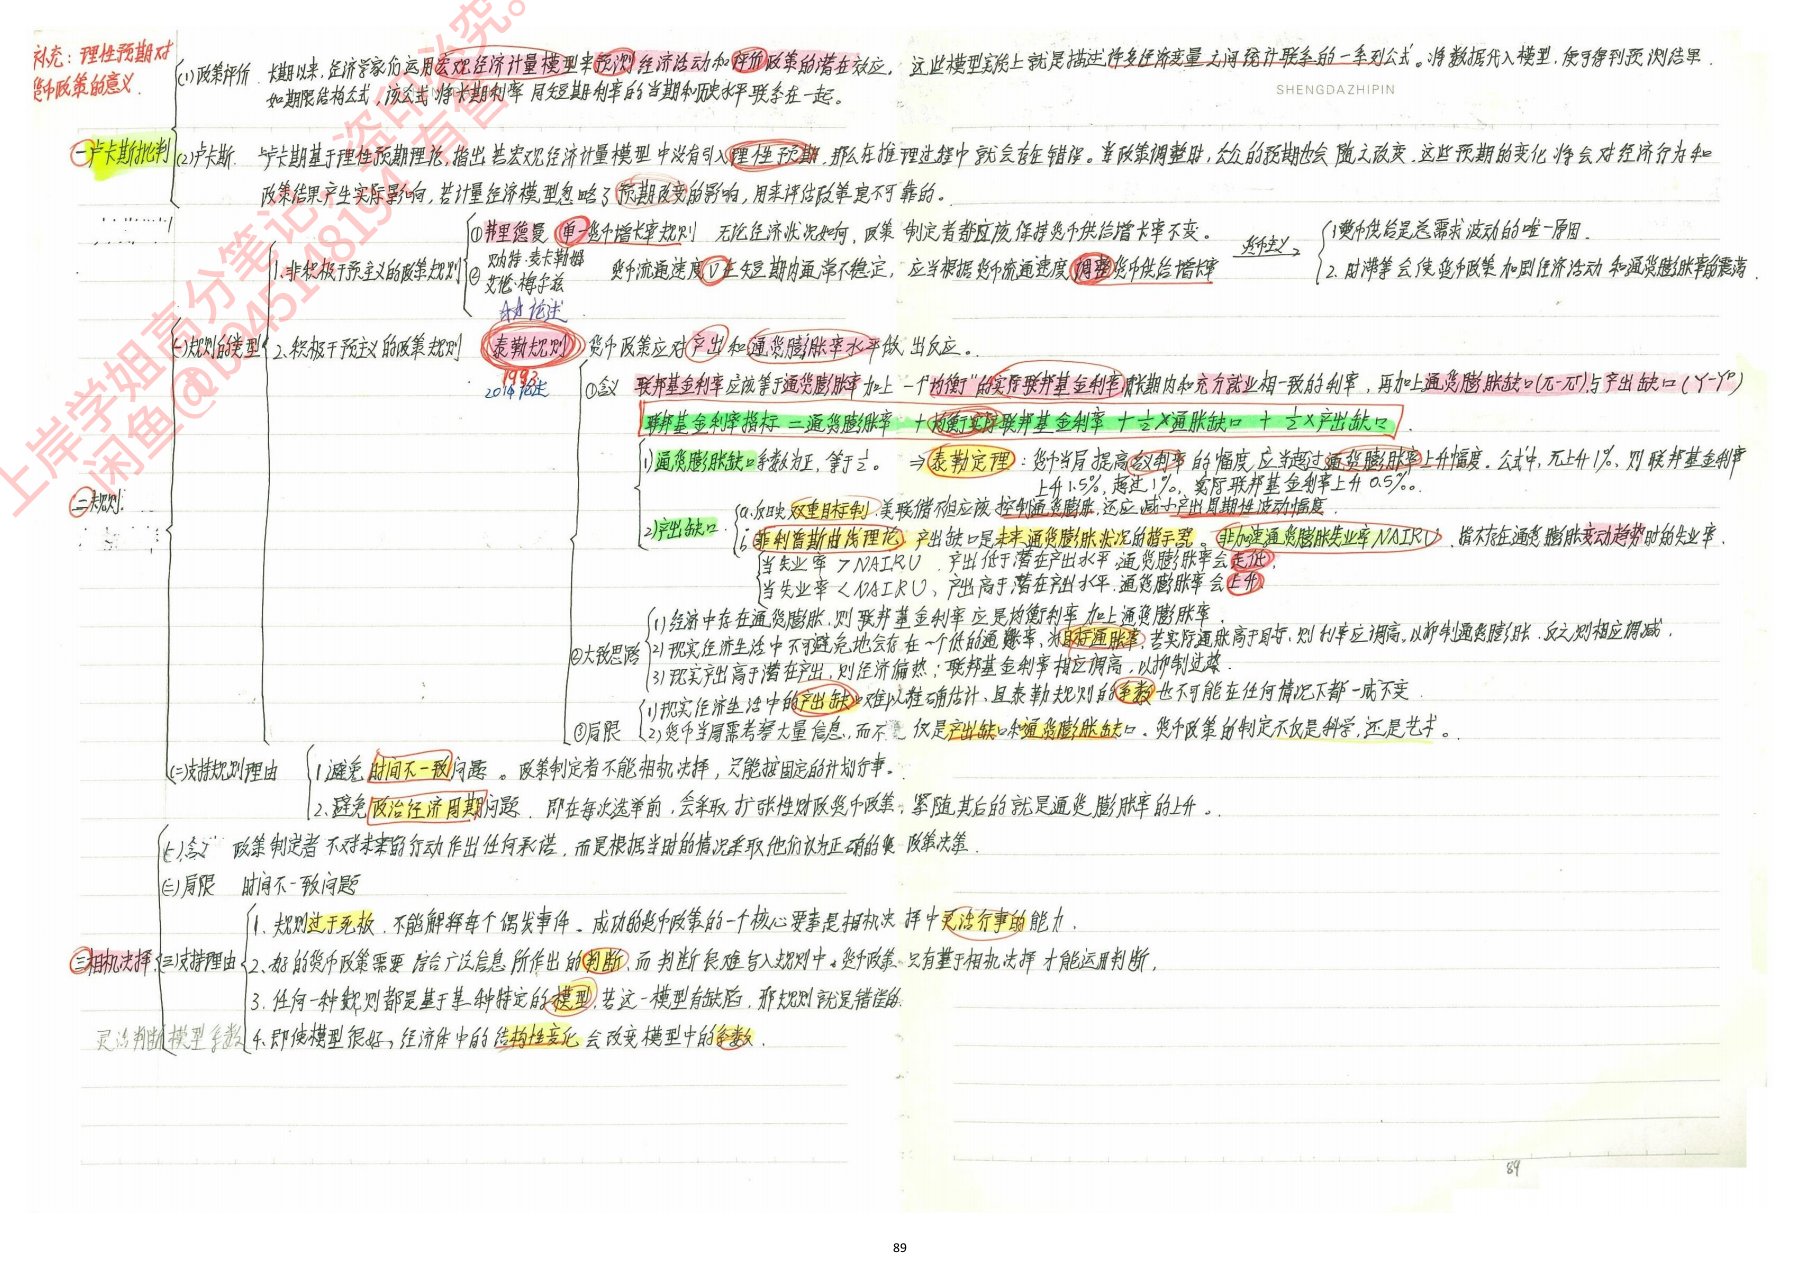 补充：理性预期对
货币政策的意义
SHENGDAZHIPIN
一 卢卡斯批判
(1)政策评价 长期以来，经济学家们运用宏观经济计量模型来预测经济活动和评价政策的潜在效应。这些模型实际上就是描述许多经济变量之间统计联系的一系列公式。将数据代入模型，便可得到预测结果.
如期限结构公式，该公式将长期利率同短期利率的当期和历史水平联系在一起。
(2)卢卡斯. 卢卡期基于理性预期理论，指出若宏观经济计量模型中没有引入理性预期，那么在推理过程中就会存在错误。当政策调整时，公众的预期也会随之改变，这些预期的变化将会对经济行为和
政策结果产生实际影响，若计量经济模型忽略了预期改变的影响，用来评估政策是不可靠的。
二规则.
(一)规则的类型
1.非积极干预主义的政策规则
①弗里德曼 单一货币增长率规则 无论经济状况如何，政策制定者都应该保持货币供给增长率不变。
货币主义
1货币供给是总需求波动的唯一原因.
2. 时滞等会使货币政策加剧经济活动和通货膨胀率的震荡.
② 艾伦·梅尔兹 货币流通速度V在短期内通常不稳定，应当根据货币流通速度调整货币供给增长率
论述
2.积极干预主义的政策规则 泰勒规则 货币政策应对产出和通货膨胀率水平做出反应。
1993
论述
①含义 联邦基金利率应该等于通货膨胀率加上一个"均衡"的实际联邦基金利率(长期内和充分就业相一致的利率，再加上通货膨胀缺口(π-π*)与产出缺口(Y-Yᴾ)
联邦基金利率指标=通货膨胀率+均衡实际联邦基金利率+½×通胀缺口+½×产出缺口.
1)通货膨胀缺口系数为正，等于½。⇒泰勒定理：货币当局提高名义利率的幅度，应当超过通货膨胀率上升幅度。公式中，π上升1%，则联邦基金利率
上升1.5%，超过1%，实际联邦基金利率上升0.5%。
2)产出缺口.
a.反映双重目标制，美联储不但应该控制通货膨胀，还应减小产出周期性波动幅度.
b 菲利普斯曲线理论，产出缺口是未来通货膨胀状况的指示器。非加速通货膨胀失业率NAIRU，指不存在通货膨胀变动趋势时的失业率.
当失业率>NAIRU，产出低于潜在产出水平，通货膨胀率会走低，
当失业率<NAIRU、产出高于潜在产出水平.通货膨胀率会上升.
②大致思路
1)经济中存在通货膨胀，则联邦基金利率应是均衡利率加上通货膨胀率.
2)现实经济生活中不可避免地会存在一个低的通胀率，为目标通胀率，若实际通胀高于目标，则利率应调高，以抑制通货膨胀.反之则相应调减.
3)现实产出高于潜在产出，则经济偏热；联邦基金利率相应调高，以抑制过热.
③局限
1)现实经济生活中的产出缺口难以准确估计，且泰勒规则的系数也不可能在任何情况下都一成不变.
2)货币当局需考察大量信息，而不仅仅是产出缺口和通货膨胀缺口。货币政策的制定不仅是科学，还是艺术。
(二)支持规则理由
1.避免时间不一致问题。政策制定者不能相机决择，只能按固定的计划行事。
2.避免政治经济周期问题，即在每次选举前，会采取扩张性财政货币政策，紧随其后的就是通货膨胀率的上升。
三相机决择.
(一)含义 政策制定者不对未来的行动作出任何承诺，而是根据当时的情况采取他们认为正确的政策决策.
(二)局限 时间不一致问题
(三)支持理由
1、规则过于死板，不能解释每个偶发事件。成功的货币政策的一个核心要素是相机决择中灵活行事的能力.
2、好的货币政策需要综合广泛信息所作出的判断，而判断很难写入规则中。货币政策只有基于相机决择才能运用判断，
3.任何一种规则都是基于某种特定的模型，若这一模型有缺陷，那规则就是错误的
4.即使模型很好，经济体中的结构性变化会改变模型中的系数.
灵活判断模型系数
89
89
上岸学姐高分笔记，盗印必究。